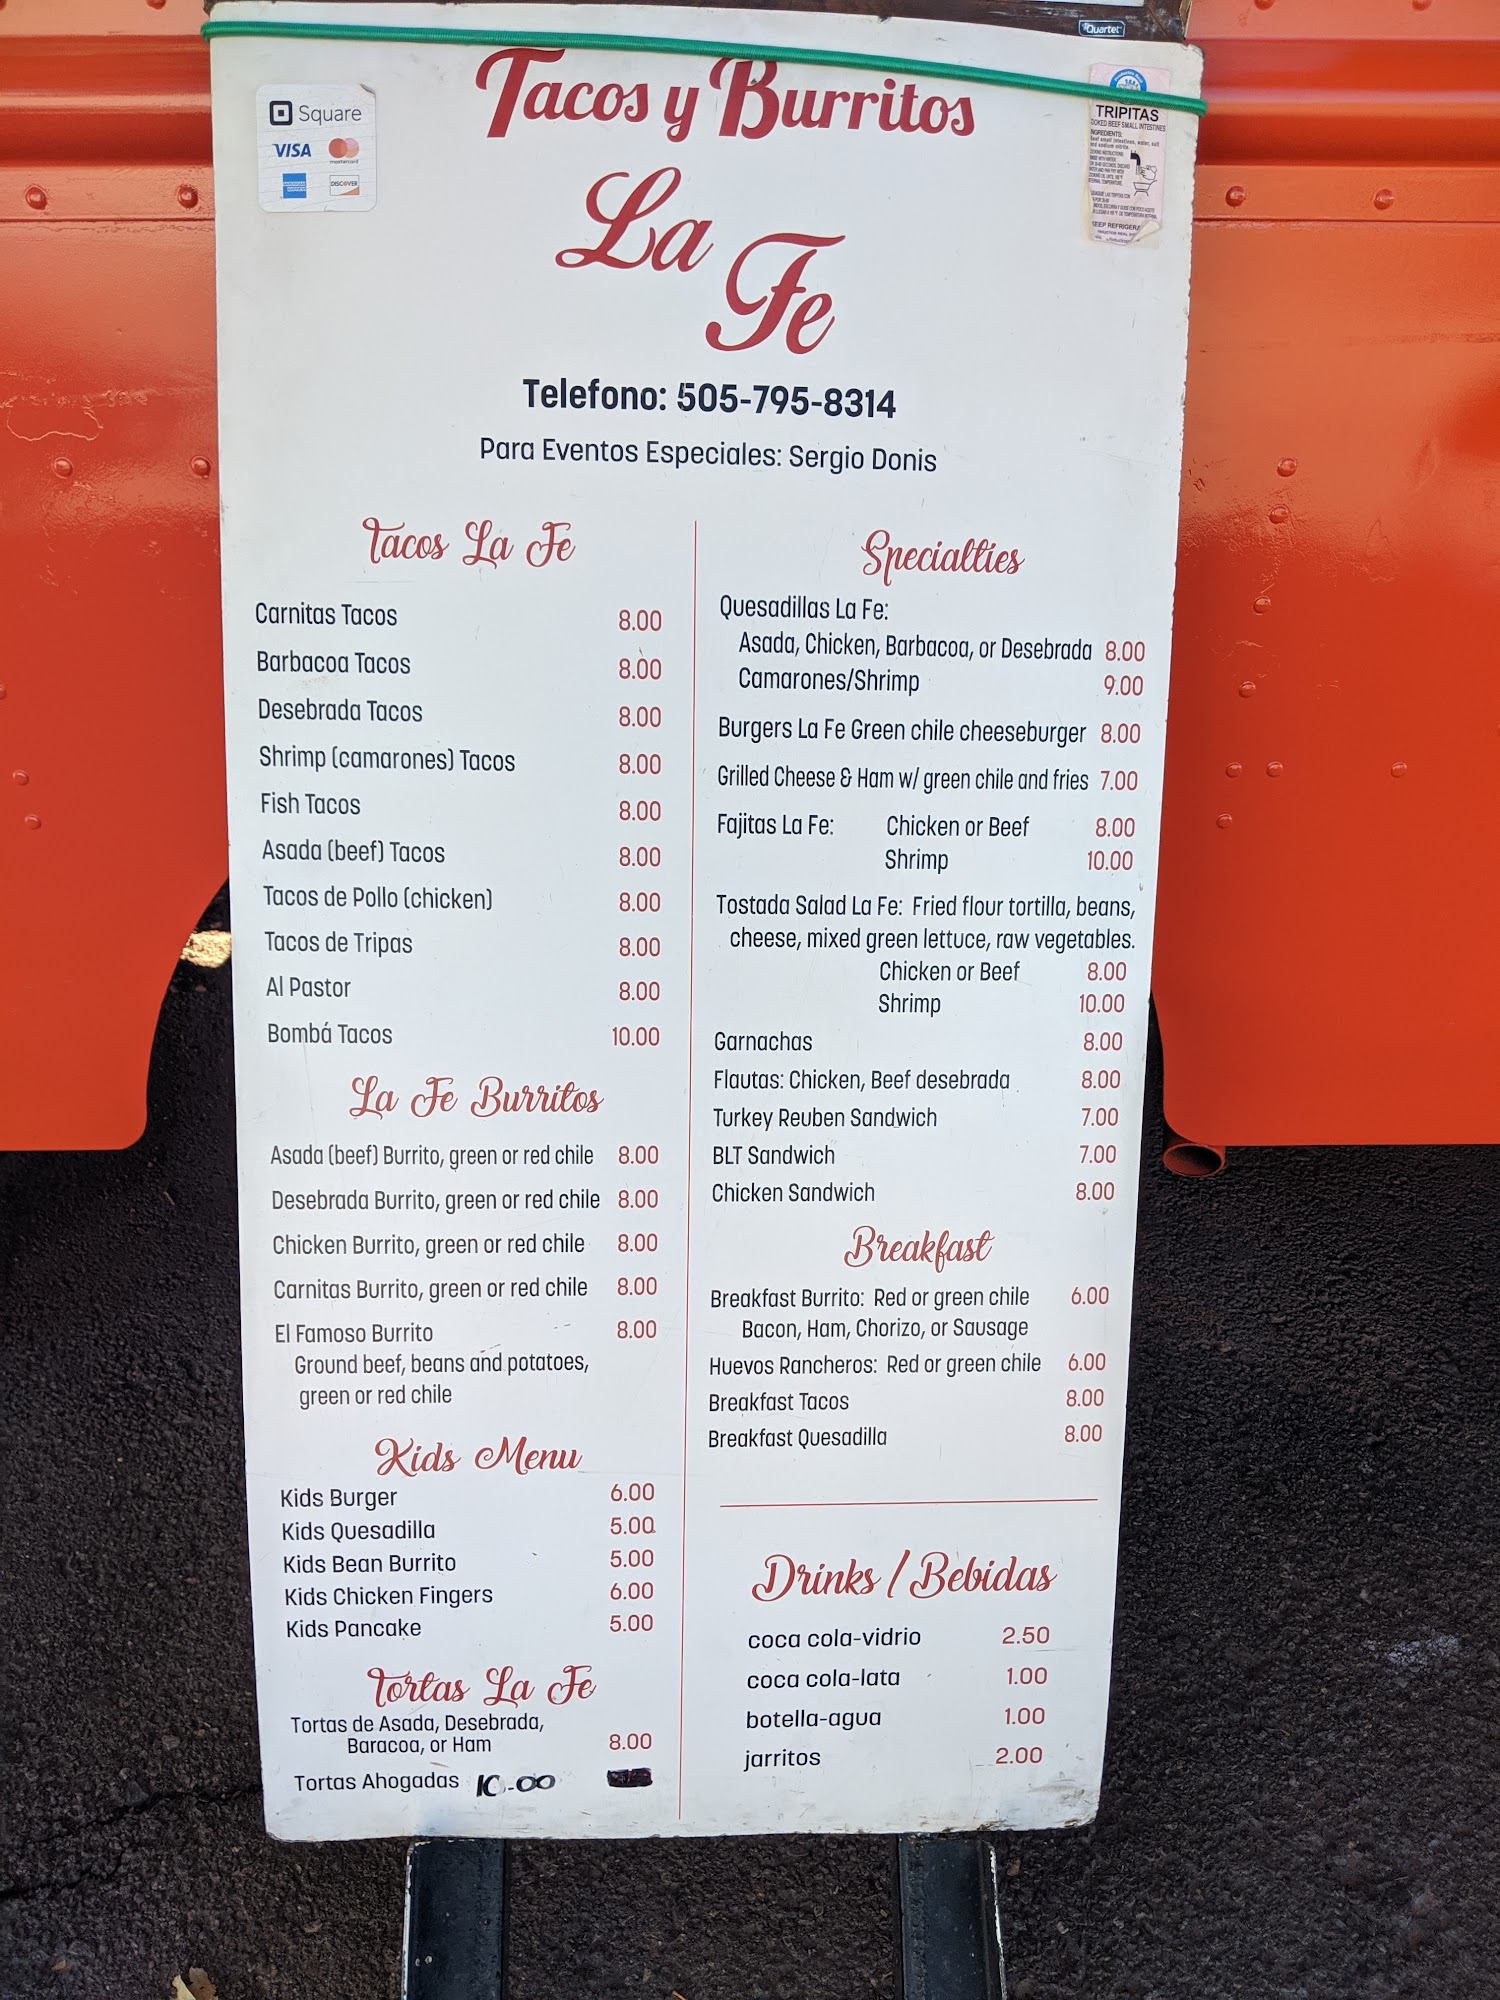 Quartet
Square
VISA
mastercard
DISCOVER
TRIPITAS
COOKED BEEF SMALL INTESTINES
INGREDIENTS:
Tacos y Burritos
La
Fe
Telefono: 505-795-8314
Para Eventos Especiales: Sergio Donis
Tacos La Fe
Carnitas Tacos 8.00
Barbacoa Tacos 8.00
Desebrada Tacos 8.00
Shrimp (camarones) Tacos 8.00
Fish Tacos 8.00
Asada (beef) Tacos 8.00
Tacos de Pollo (chicken) 8.00
Tacos de Tripas 8.00
Al Pastor 8.00
Bombá Tacos 10.00
La Fe Burritos
Asada (beef) Burrito, green or red chile 8.00
Desebrada Burrito, green or red chile 8.00
Chicken Burrito, green or red chile 8.00
Carnitas Burrito, green or red chile 8.00
El Famoso Burrito 8.00
Ground beef, beans and potatoes,
green or red chile
Kids Menu
Kids Burger 6.00
Kids Quesadilla 5.00
Kids Bean Burrito 5.00
Kids Chicken Fingers 6.00
Kids Pancake 5.00
Tortas La Fe
Tortas de Asada, Desebrada,
Baracoa, or Ham 8.00
Tortas Ahogadas 10.00
Specialties
Quesadillas La Fe:
Asada, Chicken, Barbacoa, or Desebrada 8.00
Camarones/Shrimp 9.00
Burgers La Fe Green chile cheeseburger 8.00
Grilled Cheese & Ham w/ green chile and fries 7.00
Fajitas La Fe: Chicken or Beef 8.00
Shrimp 10.00
Tostada Salad La Fe: Fried flour tortilla, beans,
cheese, mixed green lettuce, raw vegetables.
Chicken or Beef 8.00
Shrimp 10.00
Garnachas 8.00
Flautas: Chicken, Beef desebrada 8.00
Turkey Reuben Sandwich 7.00
BLT Sandwich 7.00
Chicken Sandwich 8.00
Breakfast
Breakfast Burrito: Red or green chile 6.00
Bacon, Ham, Chorizo, or Sausage
Huevos Rancheros: Red or green chile 6.00
Breakfast Tacos 8.00
Breakfast Quesadilla 8.00
Drinks / Bebidas
coca cola-vidrio 2.50
coca cola-lata 1.00
botella-agua 1.00
jarritos 2.00